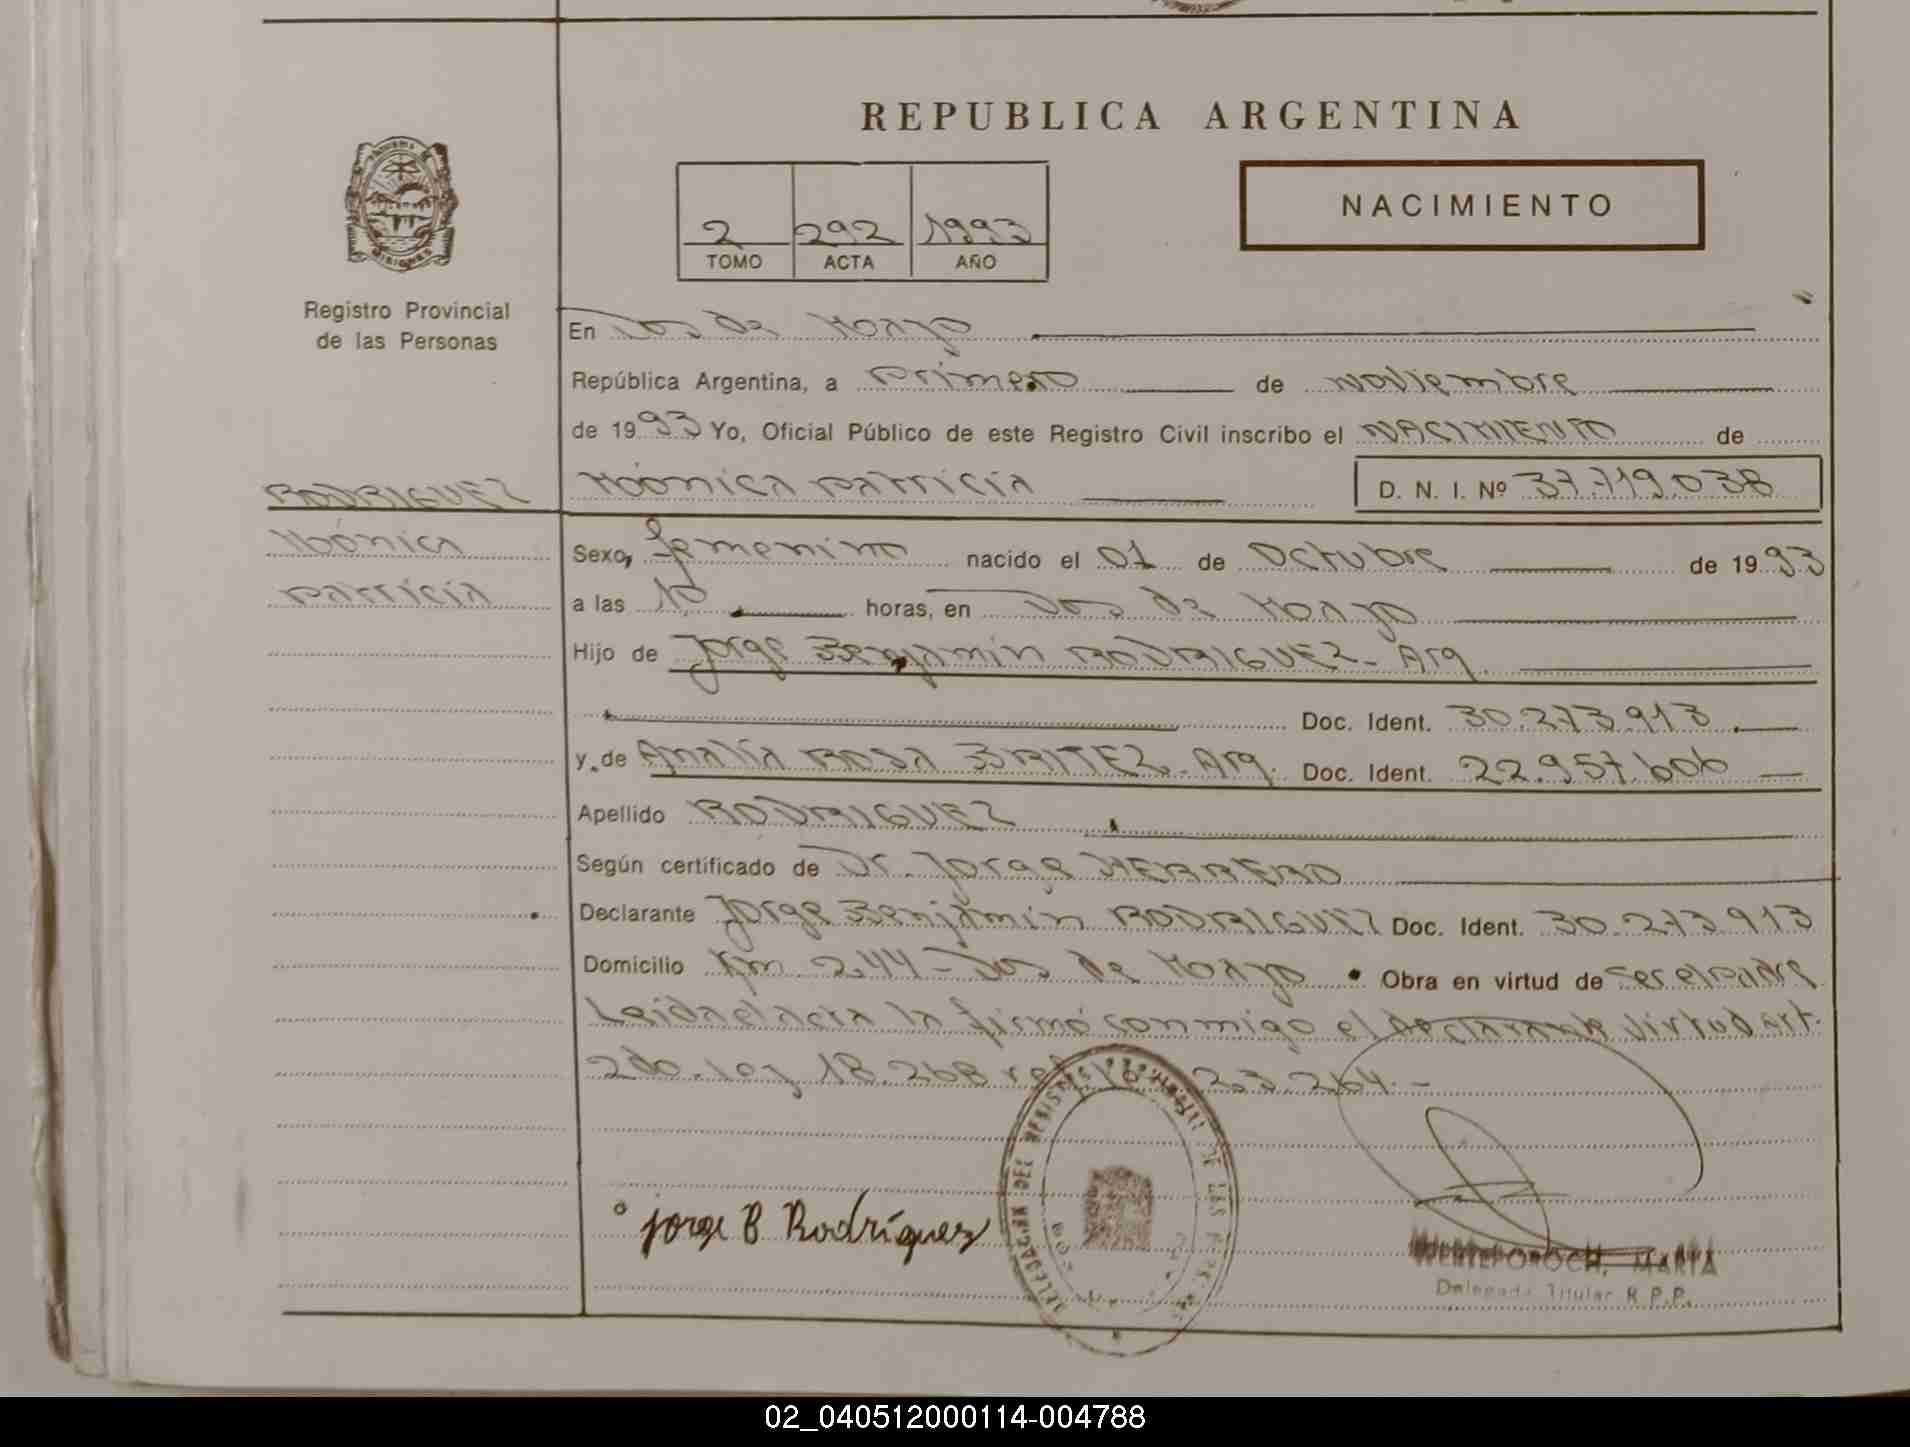 REPUBLICA ARGENTINA
NACIMIENTO
2 292 1993
TOMO ACTA AÑO
Registro Provincial
de las Personas
En Dos de Mayo
República Argentina, a primero de noviembre
de 1993 Yo, Oficial Público de este Registro Civil inscribo el NACIMIENTO de
RODRIGUEZ
Mónica Patricia
D. N. I. Nº 37.719.038
Mónica
Patricia
Sexo, femenino nacido el 01 de Octubre de 1993
a las 10 horas, en Dos de Mayo
Hijo de Jorge Benjamín RODRIGUEZ - Arg.
Doc. Ident. 30.273.913
y de Analía Rosa BRITEZ - Arg. Doc. Ident. 22.957.606
Apellido RODRIGUEZ
Según certificado de Dr. Jorge HERRERO
Declarante Jorge Benjamín RODRIGUEZ Doc. Ident. 30.273.913
Domicilio km. 244 - Dos de Mayo Obra en virtud de ser el padre
Leida el acta la firmó conmigo el declarante virtud art.
2do. ley 18.268 23.264.-
DELEGACION DEL REGISTRO PROVINCIAL DE LAS PERSONAS
Jorge B Rodríguez
MARIA
Delegada Titular R.P.P.
02_040512000114-004788